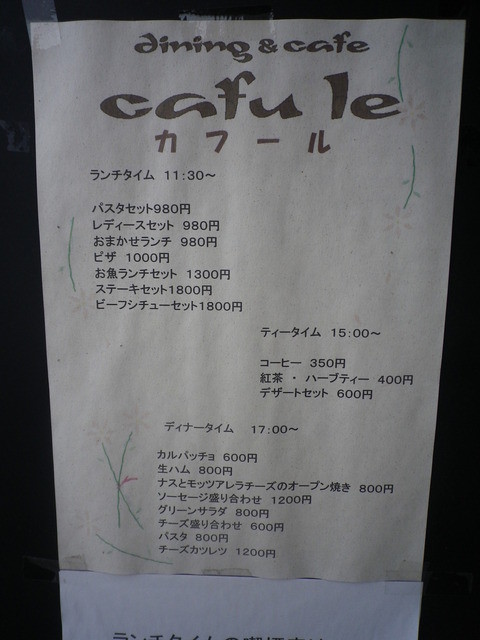 dining & cafe
cafu le
カフール
ランチタイム 11:30～
パスタセット980円
レディースセット 980円
おまかせランチ 980円
ピザ 1000円
お魚ランチセット 1300円
ステーキセット1800円
ビーフシチューセット1800円
ティータイム 15:00～
コーヒー 350円
紅茶 ・ ハーブティー 400円
デザートセット 600円
ディナータイム 17:00～
カルパッチョ 600円
生ハム 800円
ナスとモッツアレラチーズのオーブン焼き 800円
ソーセージ盛り合わせ 1200円
グリーンサラダ 800円
チーズ盛り合わせ 600円
パスタ 800円
チーズカツレツ 1200円
ランチタイムの